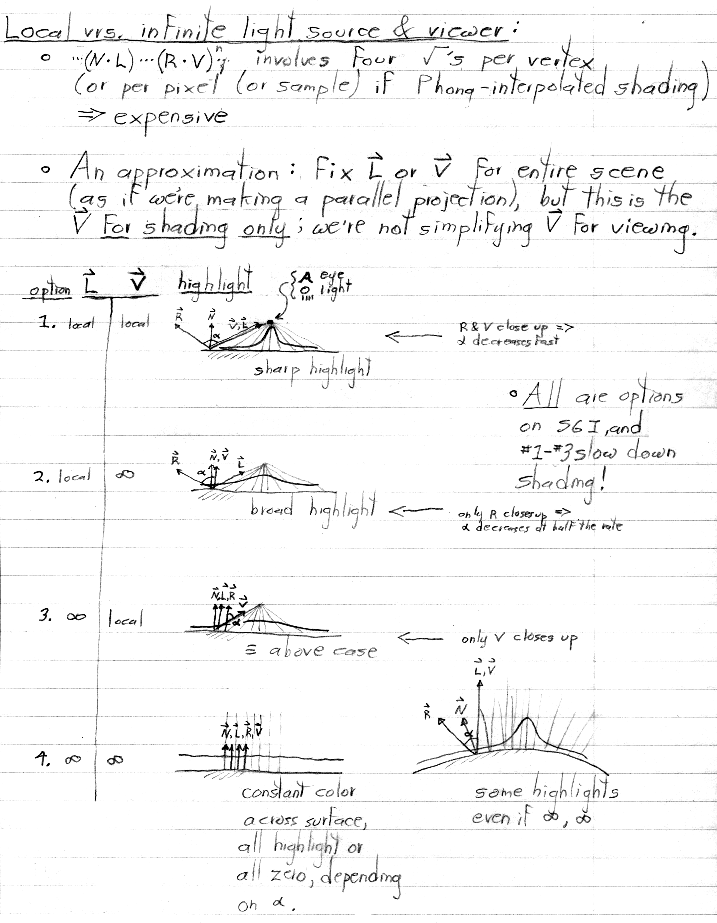 Local vrs. infinite light source & viewer:
° ...(N·L)...(R·V)ⁿ; involves four √'s per vertex
(or per pixel (or sample) if Phong-interpolated shading)
⇒ expensive
° An approximation: Fix L⃗ or V⃗ for entire scene
(as if we're making a parallel projection), but this is the
V⃗ for shading only; we're not simplifying V⃗ for viewing.
option L⃗ V⃗ highlight
eye
light
1. local local
R⃗ N⃗ V⃗,L⃗ α
R & V close up =>
α decreases fast
sharp highlight
° All are options
on SGI, and
#1-#3 slow down
shading!
2. local ∞
R⃗ N⃗,V⃗ L⃗ α
broad highlight
only R closes up =>
α decreases at half the rate
3. ∞ local
N⃗,L⃗,R⃗ V⃗ α
≡ above case
only V closes up
4. ∞ ∞
N⃗,L⃗,R⃗,V⃗
L⃗,V⃗
R⃗ N⃗ α
constant color
across surface,
all highlight or
all zero, depending
on α.
some highlights
even if ∞,∞